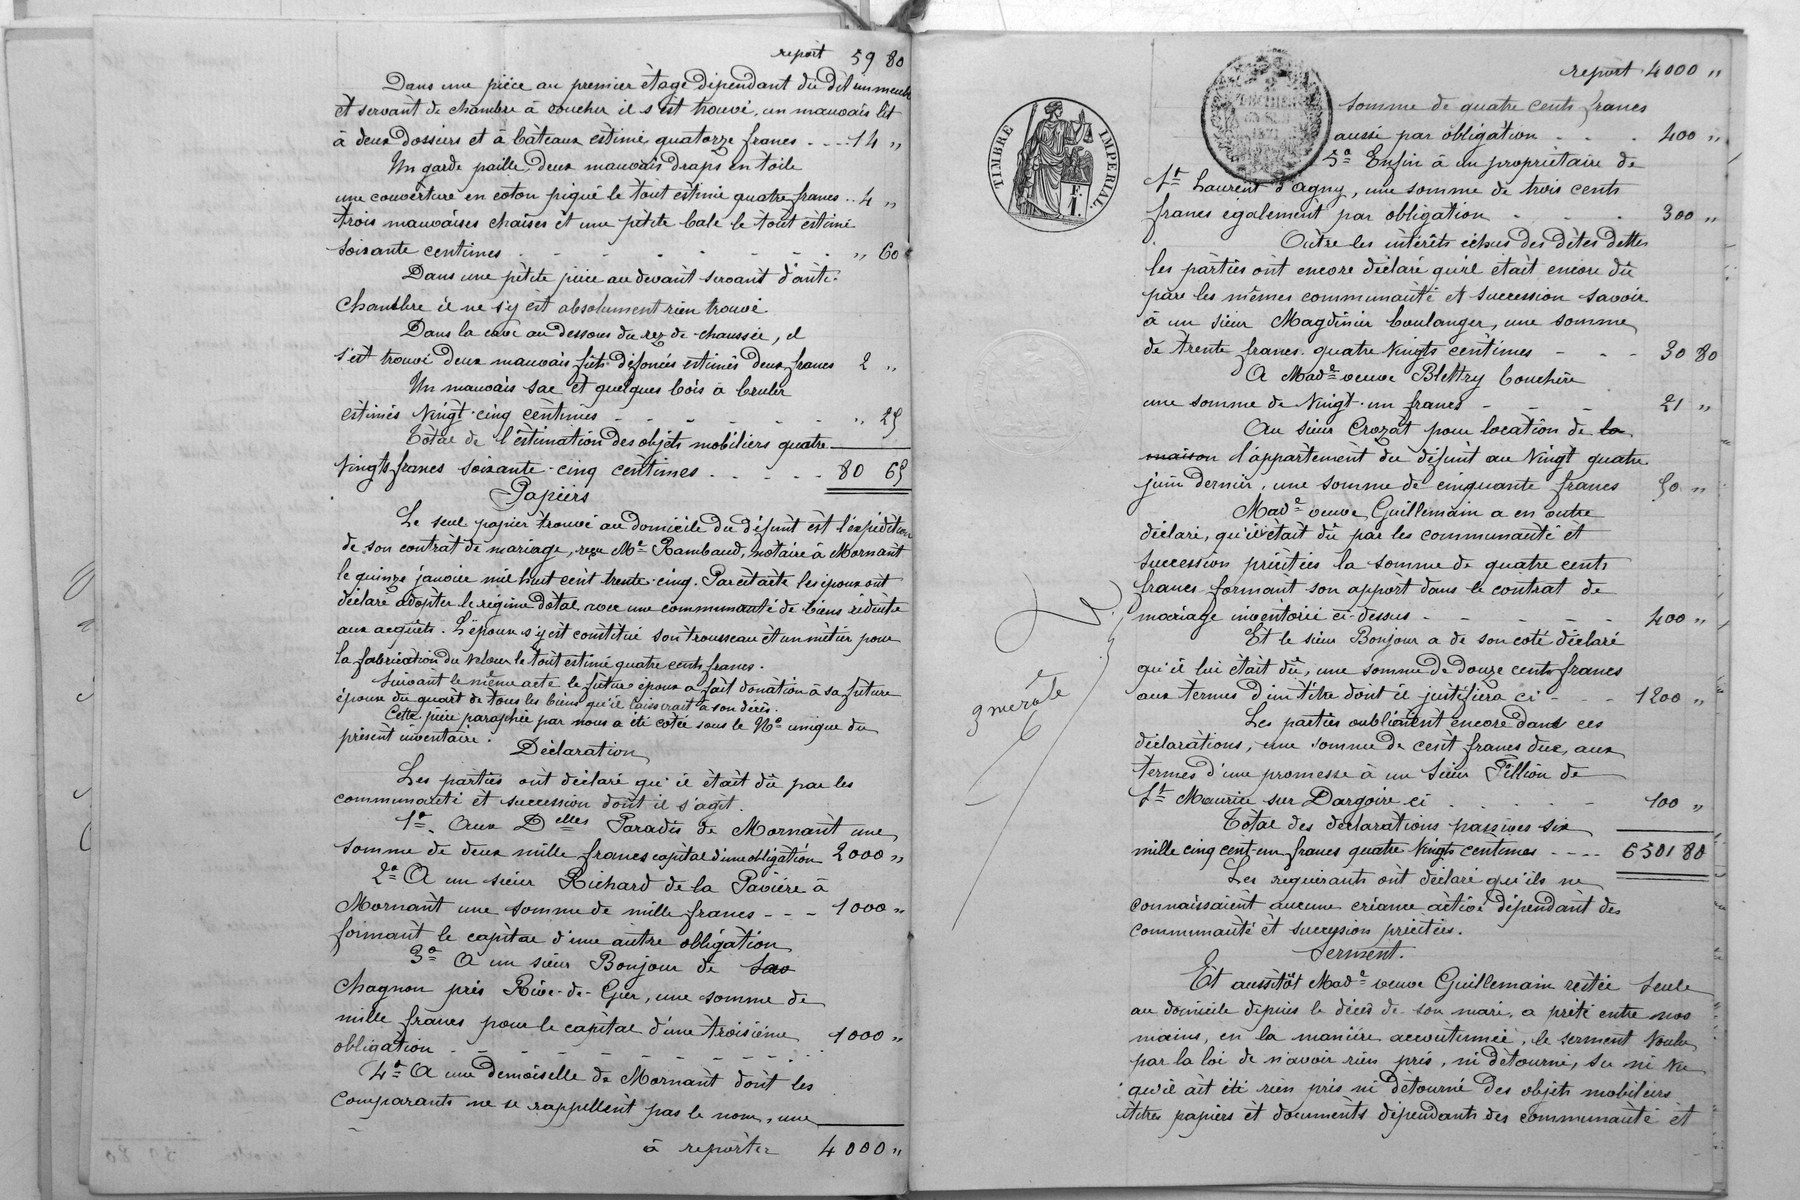 report 59 80
Dans une pièce au premier étage dépendant du dit immeuble
et servant de chambre à coucher il s'est trouvé, un mauvais lit
à deux dossiers et à bâteaux estimé quatorze francs . . . . 14 "
Un garde paille, deux mauvais draps en toile
une couverture en coton piqué le tout estimé quatre francs . . 4 "
trois mauvaises chaises et une petite bale le tout estimé
soixante centimes . . . . . . . . " 60
Dans une pètite pièce au devant servant d'anti-
chambre il ne s'y est absolument rien trouvé.
Dans la cave au dessous du rez-de-chaussée, il
s'est trouvé deux mauvais fûts défoncés estimés deux francs 2 "
Un mauvais sac et quelques bois à bruler
estimés vingt-cinq centimes . . . . . . " 25
Total de l'estimation des objets mobiliers quatre
vingts francs soixante-cinq centimes . . . . . 80 65
Papiers
Le seul papier trouvé au domicile du défunt est l'expédition
de son contrat de mariage, reçu Me Rambaud, notaire à Mornant
le quinze janvier mil huit cent trente-cinq. Par cet acte les époux ont
déclaré adopter le régime dotal avec une communauté de biens réduite
aux acquêts. L'épouse s'y est constitué son trousseau et un métier pour
la fabrication du velour le tout estimé quatre cents francs.
Suivant le même acte le futur époux a fait donation à sa future
épouse du quart de tous les biens qu'il laisserait à son décès.
Cette pièce paraphée par nous a été cotée sous le No unique du
présent inventaire.
Déclaration
Les parties ont déclaré qu'il était dû par les
communauté et succession dont il s'agit.
1o Aux Delles Paradis de Mornant une
somme de deux mille francs capital d'une obligation 2000 "
2o A un sieur Richard de la Pavière à
Mornant une somme de mille francs - - - 1000 "
formant le capital d'une autre obligation
3o A un sieur Bonjour de
Chagnon près Rive-de-Gier, une somme de
mille francs pour le capital d'une troisième
obligation . . . . . . . . . 1000 "
4o A une demoiselle de Mornant dont les
comparants ne se rappellent pas le nom, une
à reporter 4000 "
TIMBRE IMPERIAL
F.
I.
3me rôle
report 4000 "
somme de quatre cents francs
aussi par obligation . . . 400 "
5o Enfin à un propriétaire de
St Laurent d'Agny, une somme de trois cents
francs également par obligation . . . 300 "
Outre les intérêts échus des dites dettes
les parties ont encore déclaré qu'il était encore dû
par les mêmes communauté et succession savoir
à un sieur Magdinier boulanger, une somme
de trente francs quatre vingts centimes - - - 30 80
A Made veuve Blettry bouchère
une somme de vingt-un francs - - - 21 "
Au sieur Crozat pour location de la
maison l'appartement du défunt au vingt quatre
juin dernier, une somme de cinquante francs 50 "
Made veuve Guillemain a en outre
déclaré, qu'il était dû par les communauté et
succession précitées la somme de quatre cents
francs formant son apport dans le contrat de
mariage inventorié ci-dessus - - - - - 400 "
Et le sieur Bonjour a de son coté déclaré
qu'il lui était dû, une somme de douze cents francs
aux termes d'un titre dont il justifiera ci - - 1200 "
Les parties oublièrent encore dans ces
déclarations, une somme de cent francs due, aux
termes d'une promesse à un sieur Fillion de
St Maurice sur Dargoire ci . . . . . 100 "
Total des déclarations passives six
mille cinq cent-un francs quatre vingts centimes - - - - 6501 80
Les requérants ont déclaré qu'ils ne
connaissaient aucune créance active dépendant des
communauté et succession précitées.
Serment.
Et aussitôt Made veuve Guillemain restée seule
au domicile depuis le décès de son mari, a prêté entre nos
mains, en la manière accoutumée, le serment voulu
par la loi de n'avoir rien pris, ni détourné, su ni vu
qu'il ait été rien pris ni détourné des objets mobiliers
titres papiers et documents dépendants des communauté et